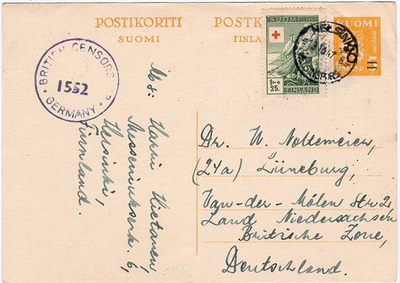 POSTIKORTTI
SUOMI
POSTK
FINLA
SUOMI
FINLAND
1+ 25
HELSINKI
SUOMI
BRITISH CENSORS
1552
GERMANY
Harri Hietanen,
Messeniuksenk. 6,
Helsinki,
Finnland.
Dr. W. Noltemeier,
(24a) Lüneburg,
Van-der-Mölen Str 2a
Land Niedersachsen
Britische Zone,
Deutschland.